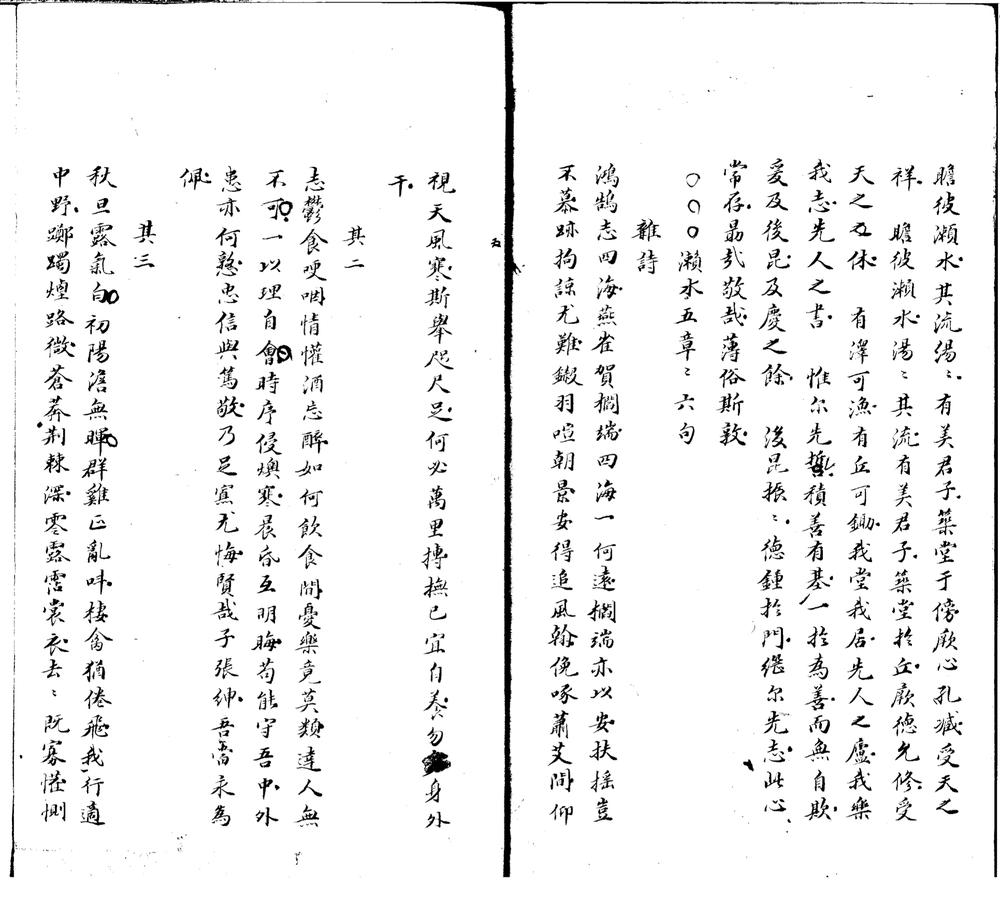 瞻彼瀨水其流湯〻有美君子築堂于傍厥心孔臧受天之
祥　瞻彼瀨水湯〻其流有美君子築堂於丘厥德允修受
天之休　有澤可漁有丘可鋤我堂我居先人之廬我樂
我志先人之書　惟尔先哲積善有基一於為善而無自欺
爰及後昆及慶之餘　後昆振〻德鍾於門継尔先志此心
常存勗哉敬哉薄俗斯敦
○○○瀨水五章〻六句
雜詩
鴻鵠志四海燕雀賀搁端四海一何遠搁端亦以安扶摇豈
不慕跡拘諒尤難鎩羽喧朝景安得追風翰俛啄蕭艾間仰
視天風寒斯舉咫尺足何必萬里摶撫已宜自养勿身外
干
其二
志鬱食哽咽情懽酒忘醉如何飲食間憂樂竟莫類達人無
不可一以理自會時序侵燠寒晨昏互明晦苟能守吾中外
患亦何憝忠信與篤敬乃足寡尤悔賢哉子張紳吾當永為
佩
其三
秋旦露氣白初陽澹無暉群雞正亂呌棲禽猶倦飛我行適
中野躑躅煙路微苍莽荆棘深零露霑裳衣去〻既寡惬惻